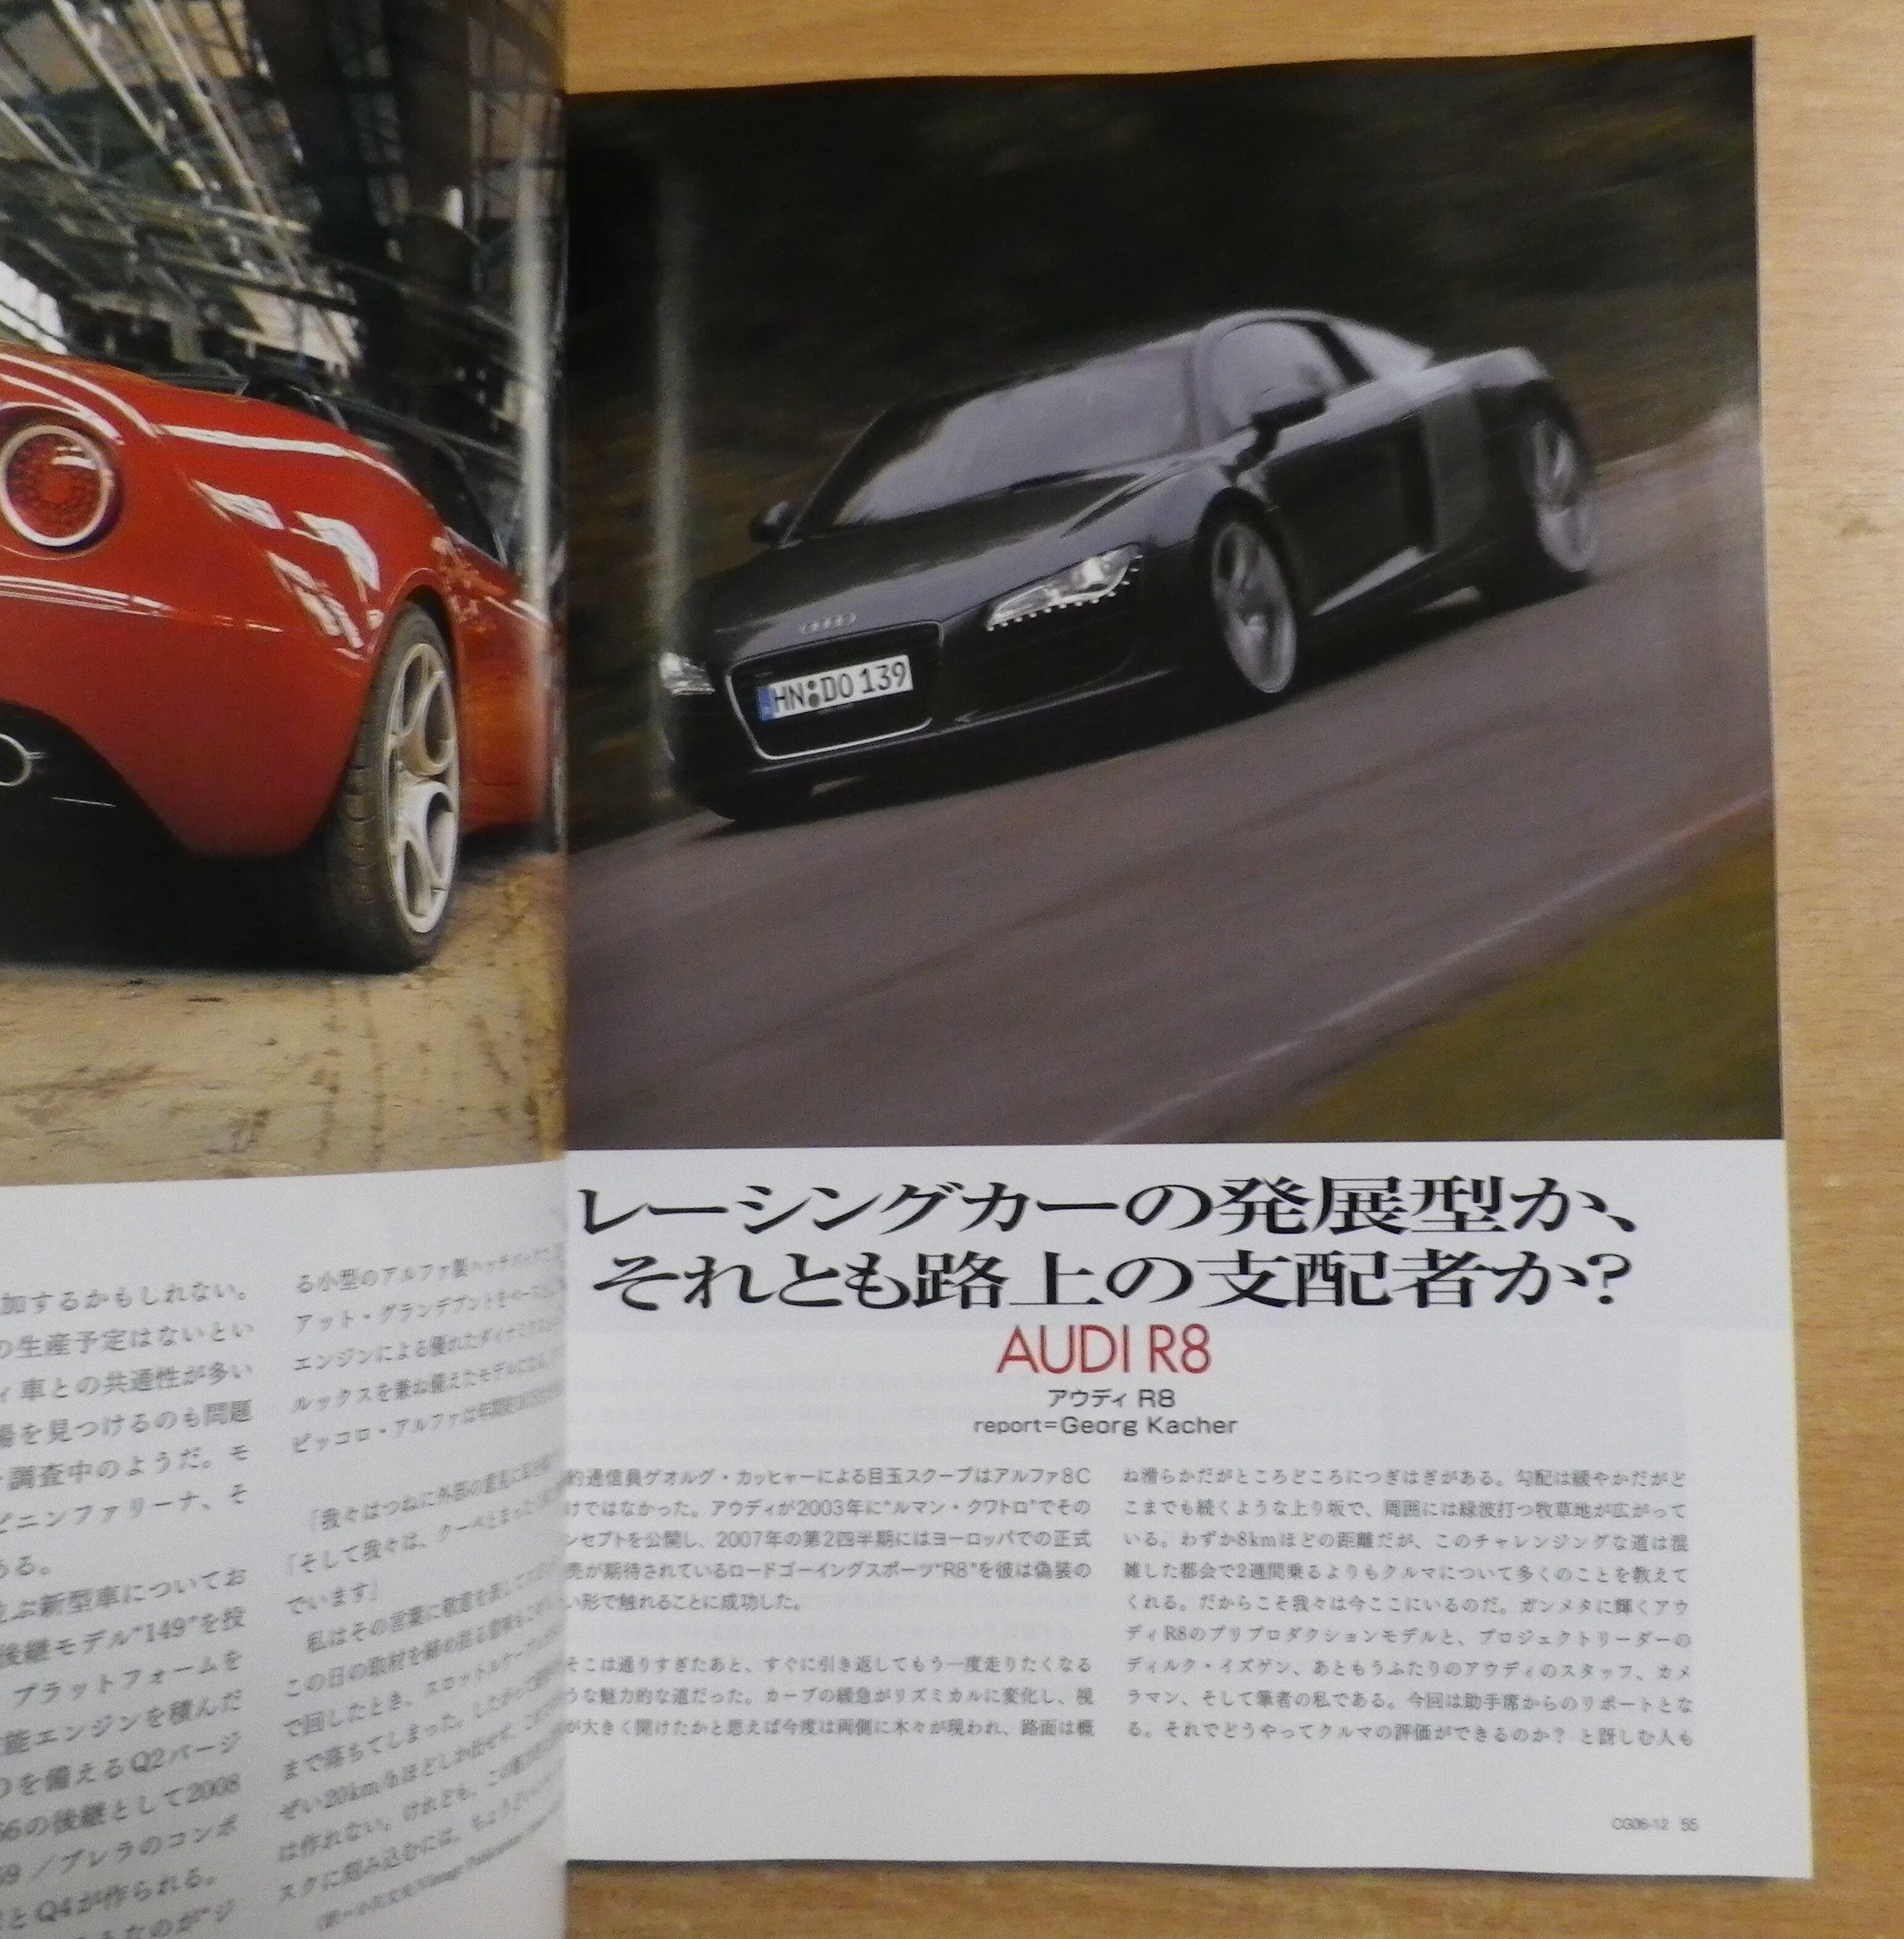 加するかもしれない。
の生産予定はないとい
ィ車との共通性が多い
場を見つけるのも問題
調査中のようだ。モ
ピニンファリーナ、そ
ある。
ぶ新型車についてお
後継モデル“149”を投
プラットフォームを
能エンジンを積んだ
を備えるQ2バージ
の後継として2008
／ブレラのコンポ
とQ4が作られる。
る小型のアルファ製
アット・グランデプントをベース
エンジンによる優れたダイナミクス
ルックスを兼ね備えたモデル
ピッコロ・アルファは年間
「我々はつねに外部の意見に
「そして我々は、クーペ
でいます」
私はその言葉に敬意を表して
この日の取材を締め括る
で回したとき、スロットル
まで落ちてしまった。したがって
ぜい20km/hほどしか出せず、
は作れない。けれども、この
スクに刻み込むには、ちょうど
HN DO 139
レーシングカーの発展型か、
それとも路上の支配者か?
AUDI R8
アウディ R8
report=Georg Kacher
約通信員ゲオルグ・カッヒャーによる目玉スクープはアルファ8C
けではなかった。アウディが2003年に“ルマン・クワトロ”でその
ンセプトを公開し、2007年の第2四半期にはヨーロッパでの正式
売が期待されているロードゴーイングスポーツ“R8”を彼は偽装の
い形で触れることに成功した。
そこは通りすぎたあと、すぐに引き返してもう一度走りたくなる
うな魅力的な道だった。カーブの緩急がリズミカルに変化し、視
が大きく開けたかと思えば今度は両側に木々が現われ、路面は概
ね滑らかだがところどころにつぎはぎがある。勾配は緩やかだがど
こまでも続くような上り坂で、周囲には緑波打つ牧草地が広がって
いる。わずか8kmほどの距離だが、このチャレンジングな道は混
雑した都会で2週間乗るよりもクルマについて多くのことを教えて
くれる。だからこそ我々は今ここにいるのだ。ガンメタに輝くアウ
ディR8のプリプロダクションモデルと、プロジェクトリーダーの
ディルク・イズゲン、あともうふたりのアウディのスタッフ、カメ
ラマン、そして筆者の私である。今回は助手席からのリポートとな
る。それでどうやってクルマの評価ができるのか? と訝しむ人も
CG06-12 55